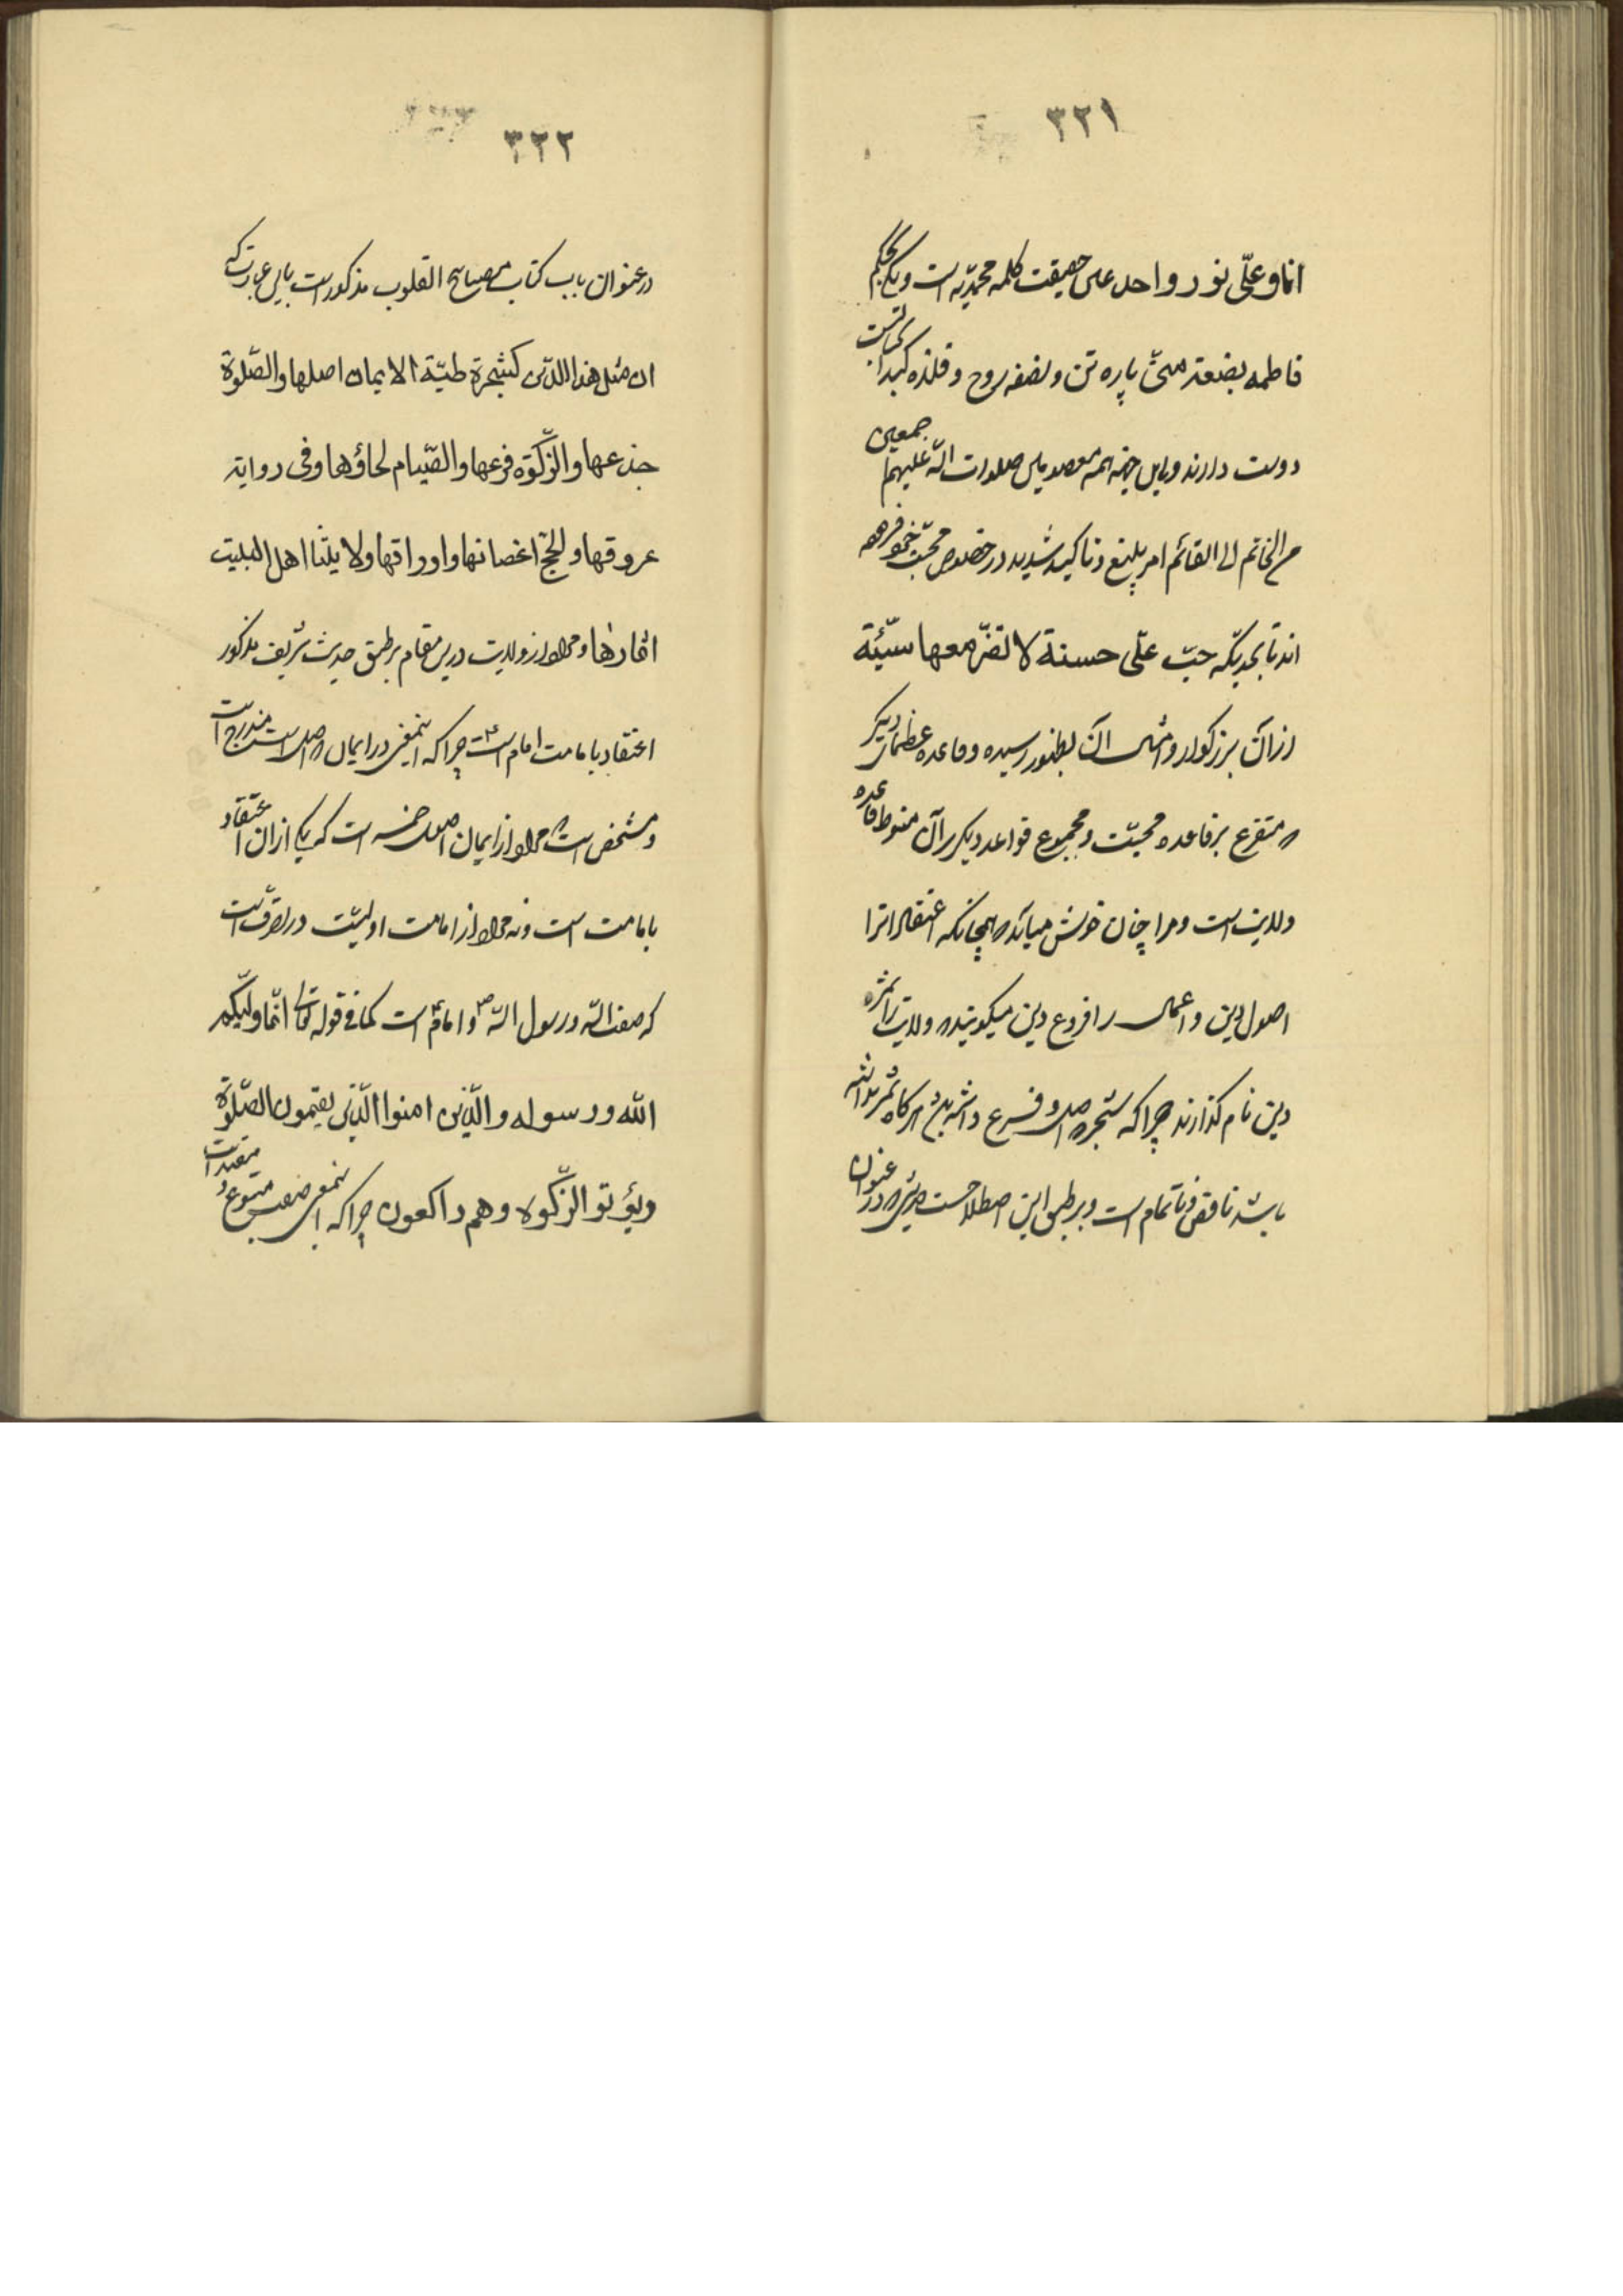 ۳۲۱
انا و علّی نور واحد علی حقیقت کلمه محمدیّه است و یکی بحکم
فاطمه بضعة منّی پاره تن و بضعه روح و فلذه کبد آن
دوست دارند و این جهة همه معصومین صلوات الله علیهم اجمعین
من الخاتم الی القائم امر بلیغ و تاکید شدید در خصوص محبّت فرموده
اند تا بحدیکه حبّ علّی حسنة لا تضرّ معها سیّئة
از آن بزرکوار و امثال آن بظهور رسیده و قاعده عظمای دیکر
که متفرع بر قاعده محبّت و مجموع قواعد دیکر بر آن منوط قاعده
ولایت است و مرا چنان خوش میآید که همچنانکه اعتقادات را
اصول دین و اعمال را فروع دین میکویند ولایت را ثمره
دین نام کذارند چرا که شجره اصل و فرع داشته هرکاه ثمر نداشته
باشد ناقص و ناتمام است و بر طبق این اصطلاحست که در عنوان
۳۲۲
در عنوان باب کتاب مصباح القلوب مذکور است باین عبارت که
ان مثل هذا الدّین کشجرة طیّبة الایمان اصلها والصّلوة
جذعها والزّکوة فرعها والصّیام لحاؤها و فی روایة
عروقها والحجّ اغصانها و اوراقها و لایتنا اهل البیت
اثمارها و مراد از ولایت درین مقام بر طبق حدیث شریف مذکور
اعتقاد بامامت امام است چرا که اینمعنی در ایمان که اصل است مندرج است
و مشخص است که مراد از ایمان اصول خمسه است که یکی از ان اعتقاد
بامامت است و نه مراد از امامت اولیّت در تصرّف است
که صفت الله و رسول الله و امام است کما فی قوله تعالی انّما ولیّکم
الله و رسوله والّذین امنوا الّذین یقیمون الصّلوة
و یؤتو الزّکوة و هم راکعون چرا که اینمعنی